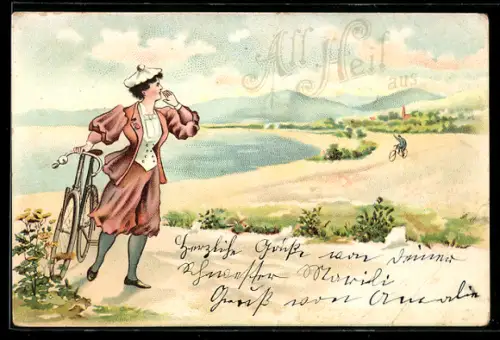 All Heil
aus
Herzliche Grüße von Deiner
Schwester Marili
Gruß von Amalie